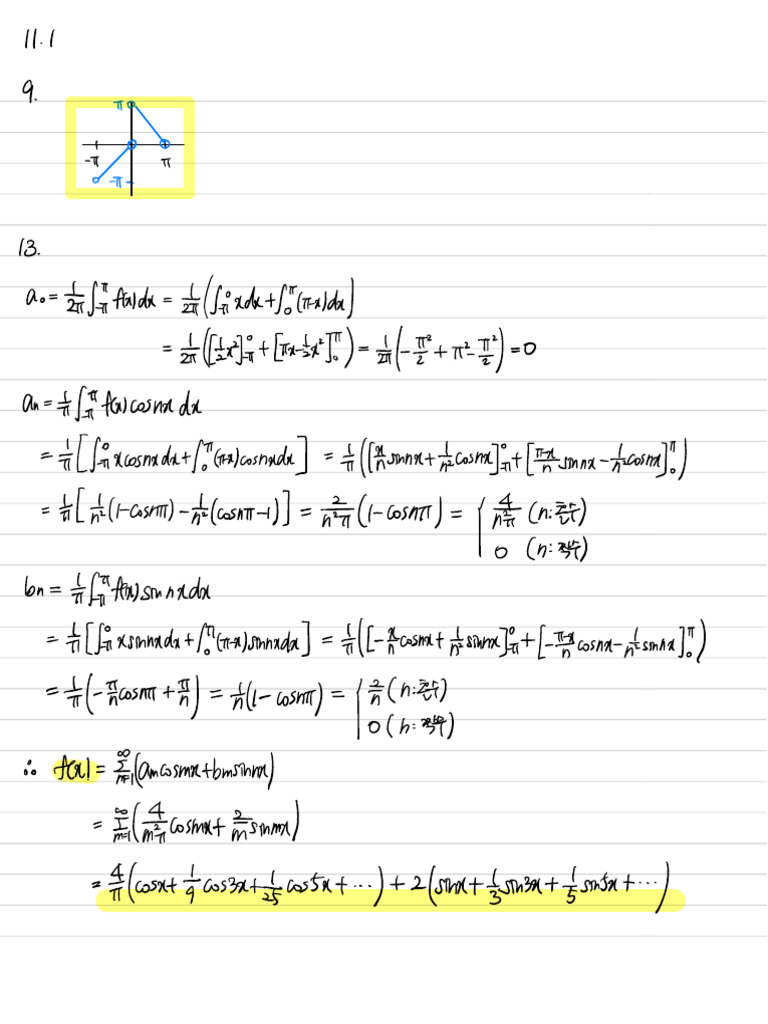 11.1
9.
π
-π
π
-π
13.
a₀ = 1/2π ∫_{-π}^{π} f(x)dx = 1/2π (∫_{-π}^{0} xdx + ∫_{0}^{π} (π-x)dx)
= 1/2π ([1/2 x²]_{-π}^{0} + [πx - 1/2 x²]_{0}^{π}) = 1/2π (-π²/2 + π² - π²/2) = 0
aₙ = 1/π ∫_{-π}^{π} f(x) cosnx dx
= 1/π [∫_{-π}^{0} xcosnxdx + ∫_{0}^{π} (π-x)cosnxdx] = 1/π ([x/n sinnx + 1/n² cosnx]_{-π}^{0} + [π-x/n sinnx - 1/n² cosnx]_{0}^{π})
= 1/π [1/n² (1-cosnπ) - 1/n² (cosnπ-1)] = 2/n²π (1-cosnπ) = { 4/n²π (n:홀수)
0 (n:짝수)
bₙ = 1/π ∫_{-π}^{π} f(x) sinnxdx
= 1/π [∫_{-π}^{0} xsinnxdx + ∫_{0}^{π} (π-x)sinnxdx] = 1/π ([-x/n cosnx + 1/n² sinnx]_{-π}^{0} + [-π-x/n cosnx - 1/n² sinnx]_{0}^{π})
= 1/π (-π/n cosnπ + π/n) = 1/n (1-cosnπ) = { 2/n (n:홀수)
0 (n:짝수)
∴ f(x) = Σ_{n=1}^{∞} (aₘcosmx + bₘsinmx)
= Σ_{m=1}^{∞} (4/m²π cosmx + 2/m sinmx)
= 4/π (cosx + 1/9 cos3x + 1/25 cos5x + ⋯) + 2 (sinx + 1/3 sin3x + 1/5 sin5x + ⋯)